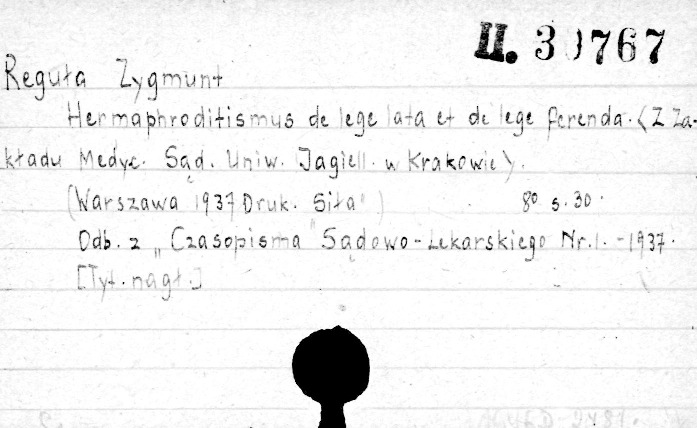 II. 30767
Reguła Zygmunt
Hermaphroditismus de lege lata et de lege ferenda. <Z Za-
kładu Medyc. Sąd. Uniw. Jagiell. w Krakowie>.
(Warszawa 1937 Druk. "Siła") 8° s. 30.
Odb. z „Czasopisma Sądowo-Lekarskiego" Nr. 1. - 1937.
[Tyt. nagł.]